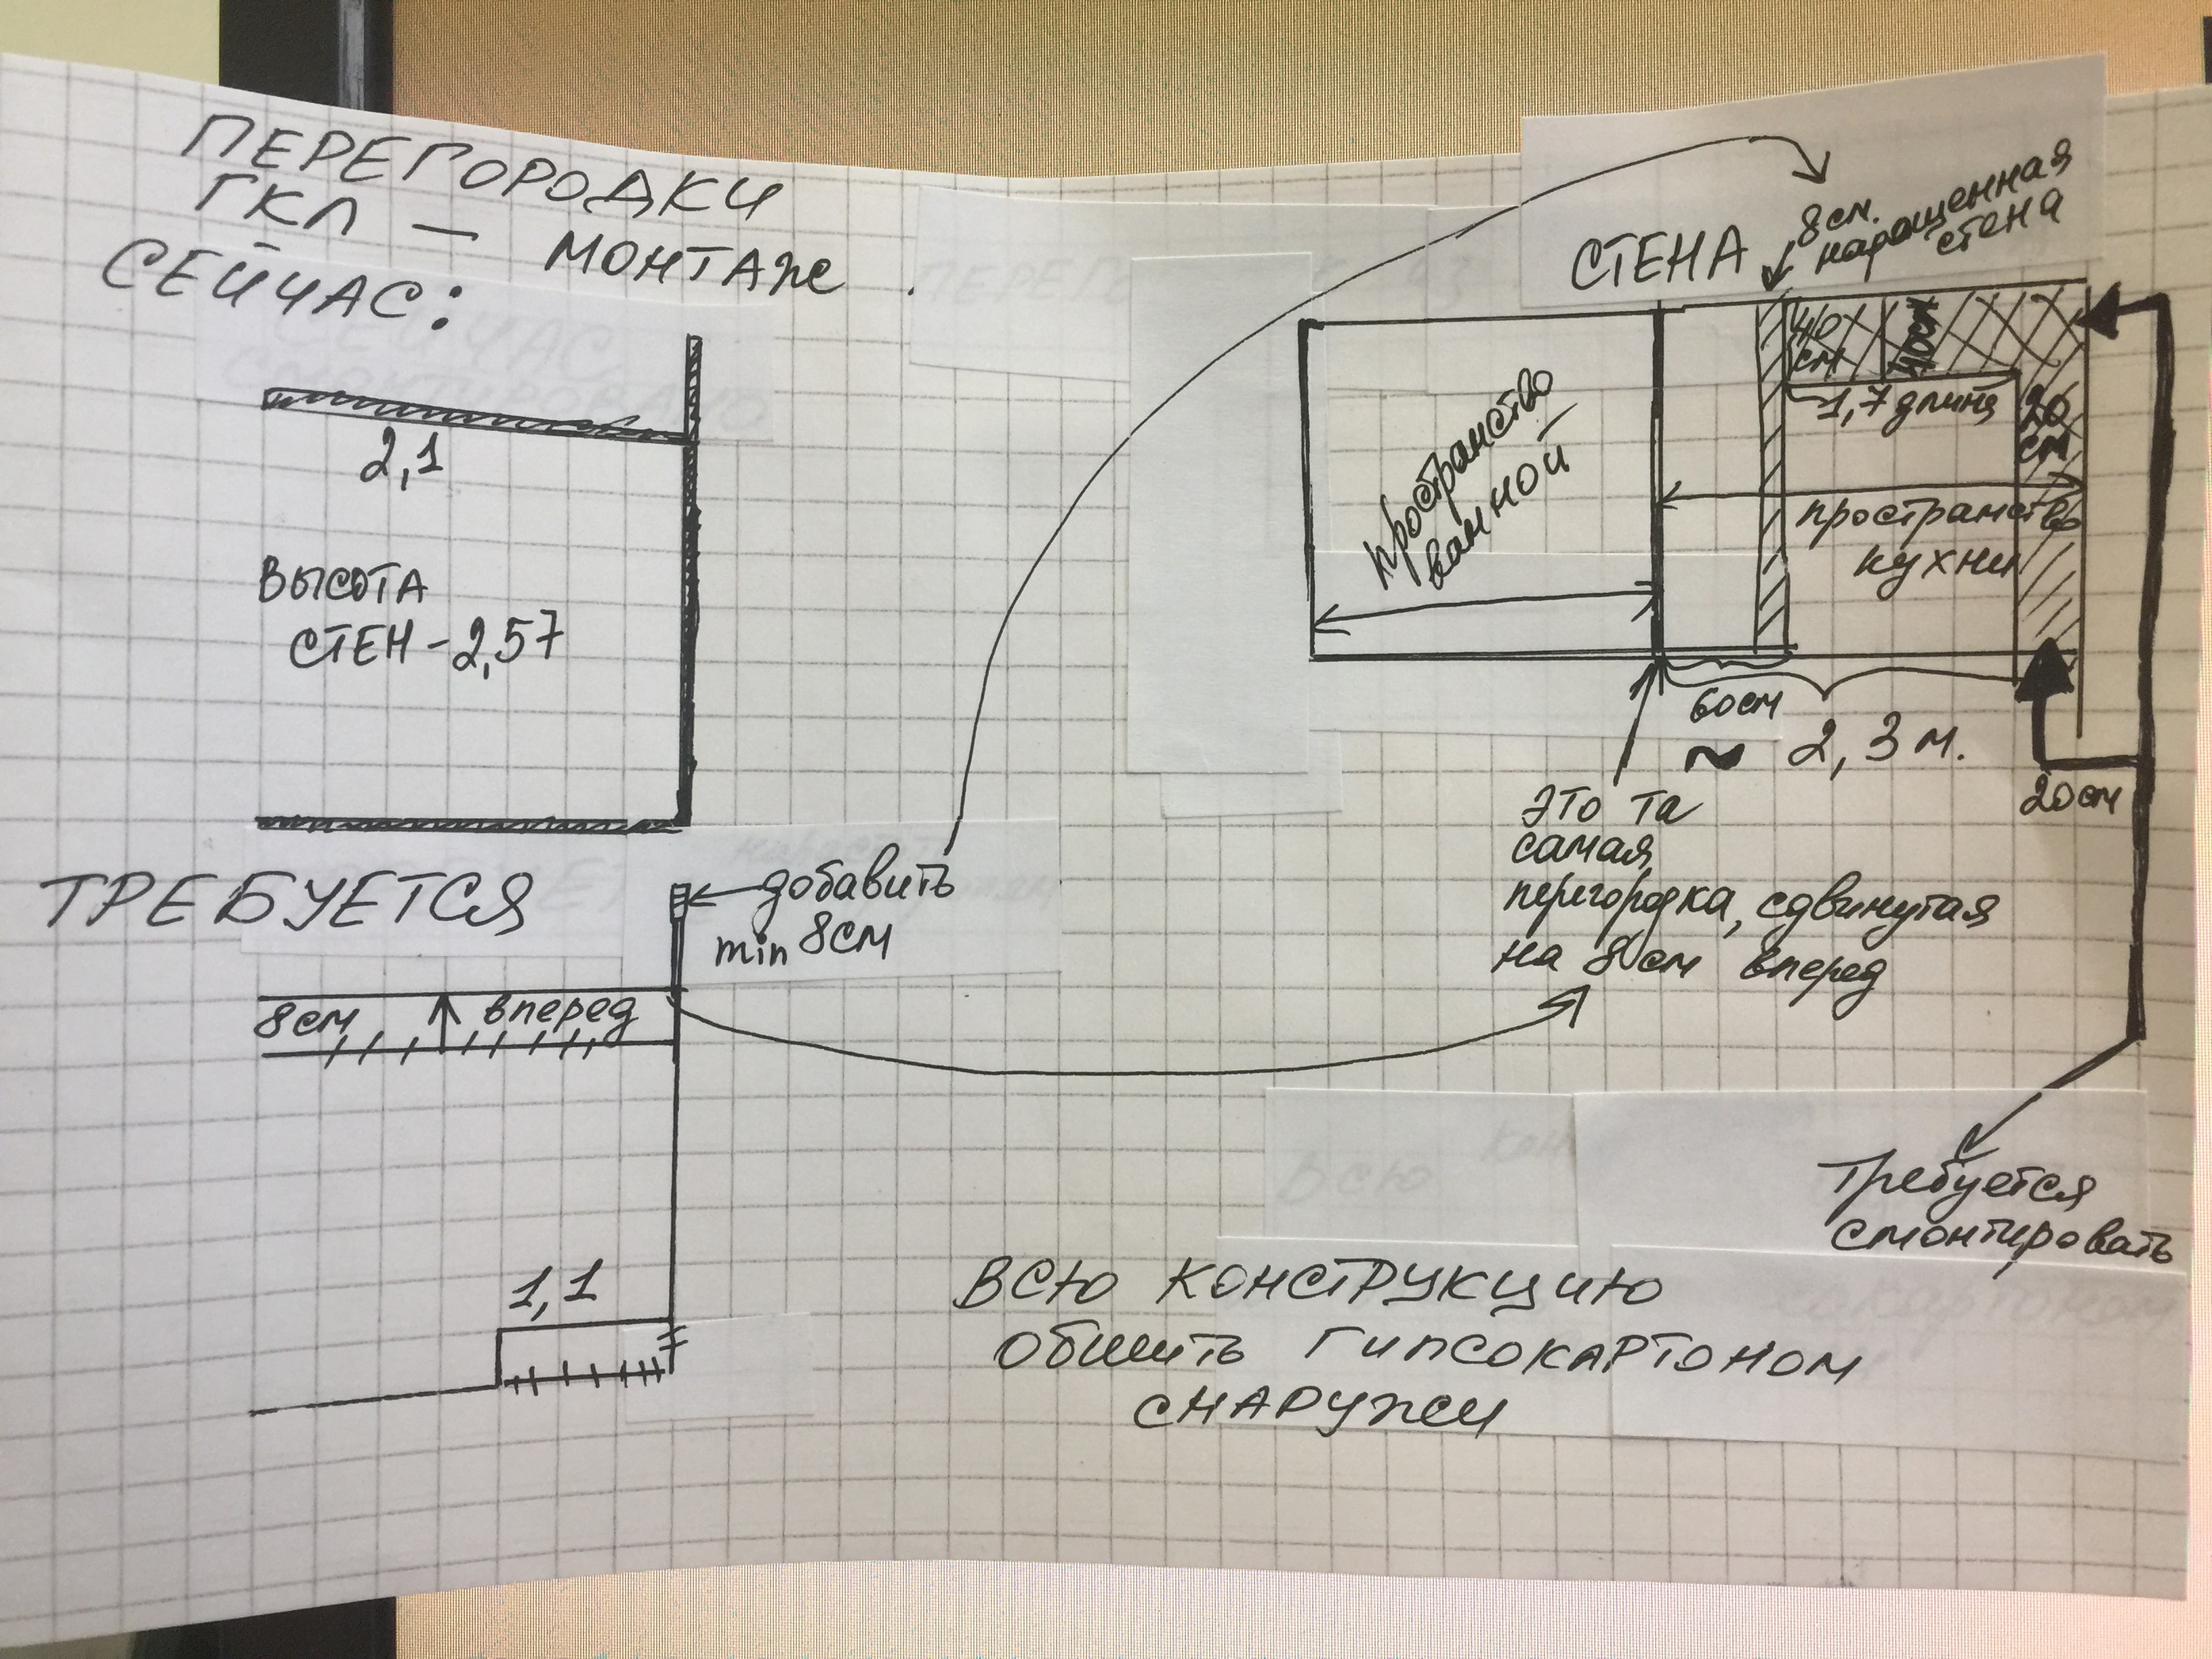 ПЕРЕГОРОДКИ
ГКЛ — МОНТАЖ.
СЕЙЧАС:
2,1
ВЫСОТА
СТЕН - 2,57
ТРЕБУЕТСЯ
добавить
min 8см
8см вперед
1,1
СТЕНА
8см.
наращенная
стена
40
см
1,7 длина
20
см
пространство
ванной
пространство
кухни
60см
~ 2,3 м.
20см
это та
самая
перегородка, сдвинутая
на 8см вперед
Требуется
смонтировать
ВСЮ КОНСТРУКЦИЮ
ОБШИТЬ ГИПСОКАРТОНОМ
СНАРУЖИ